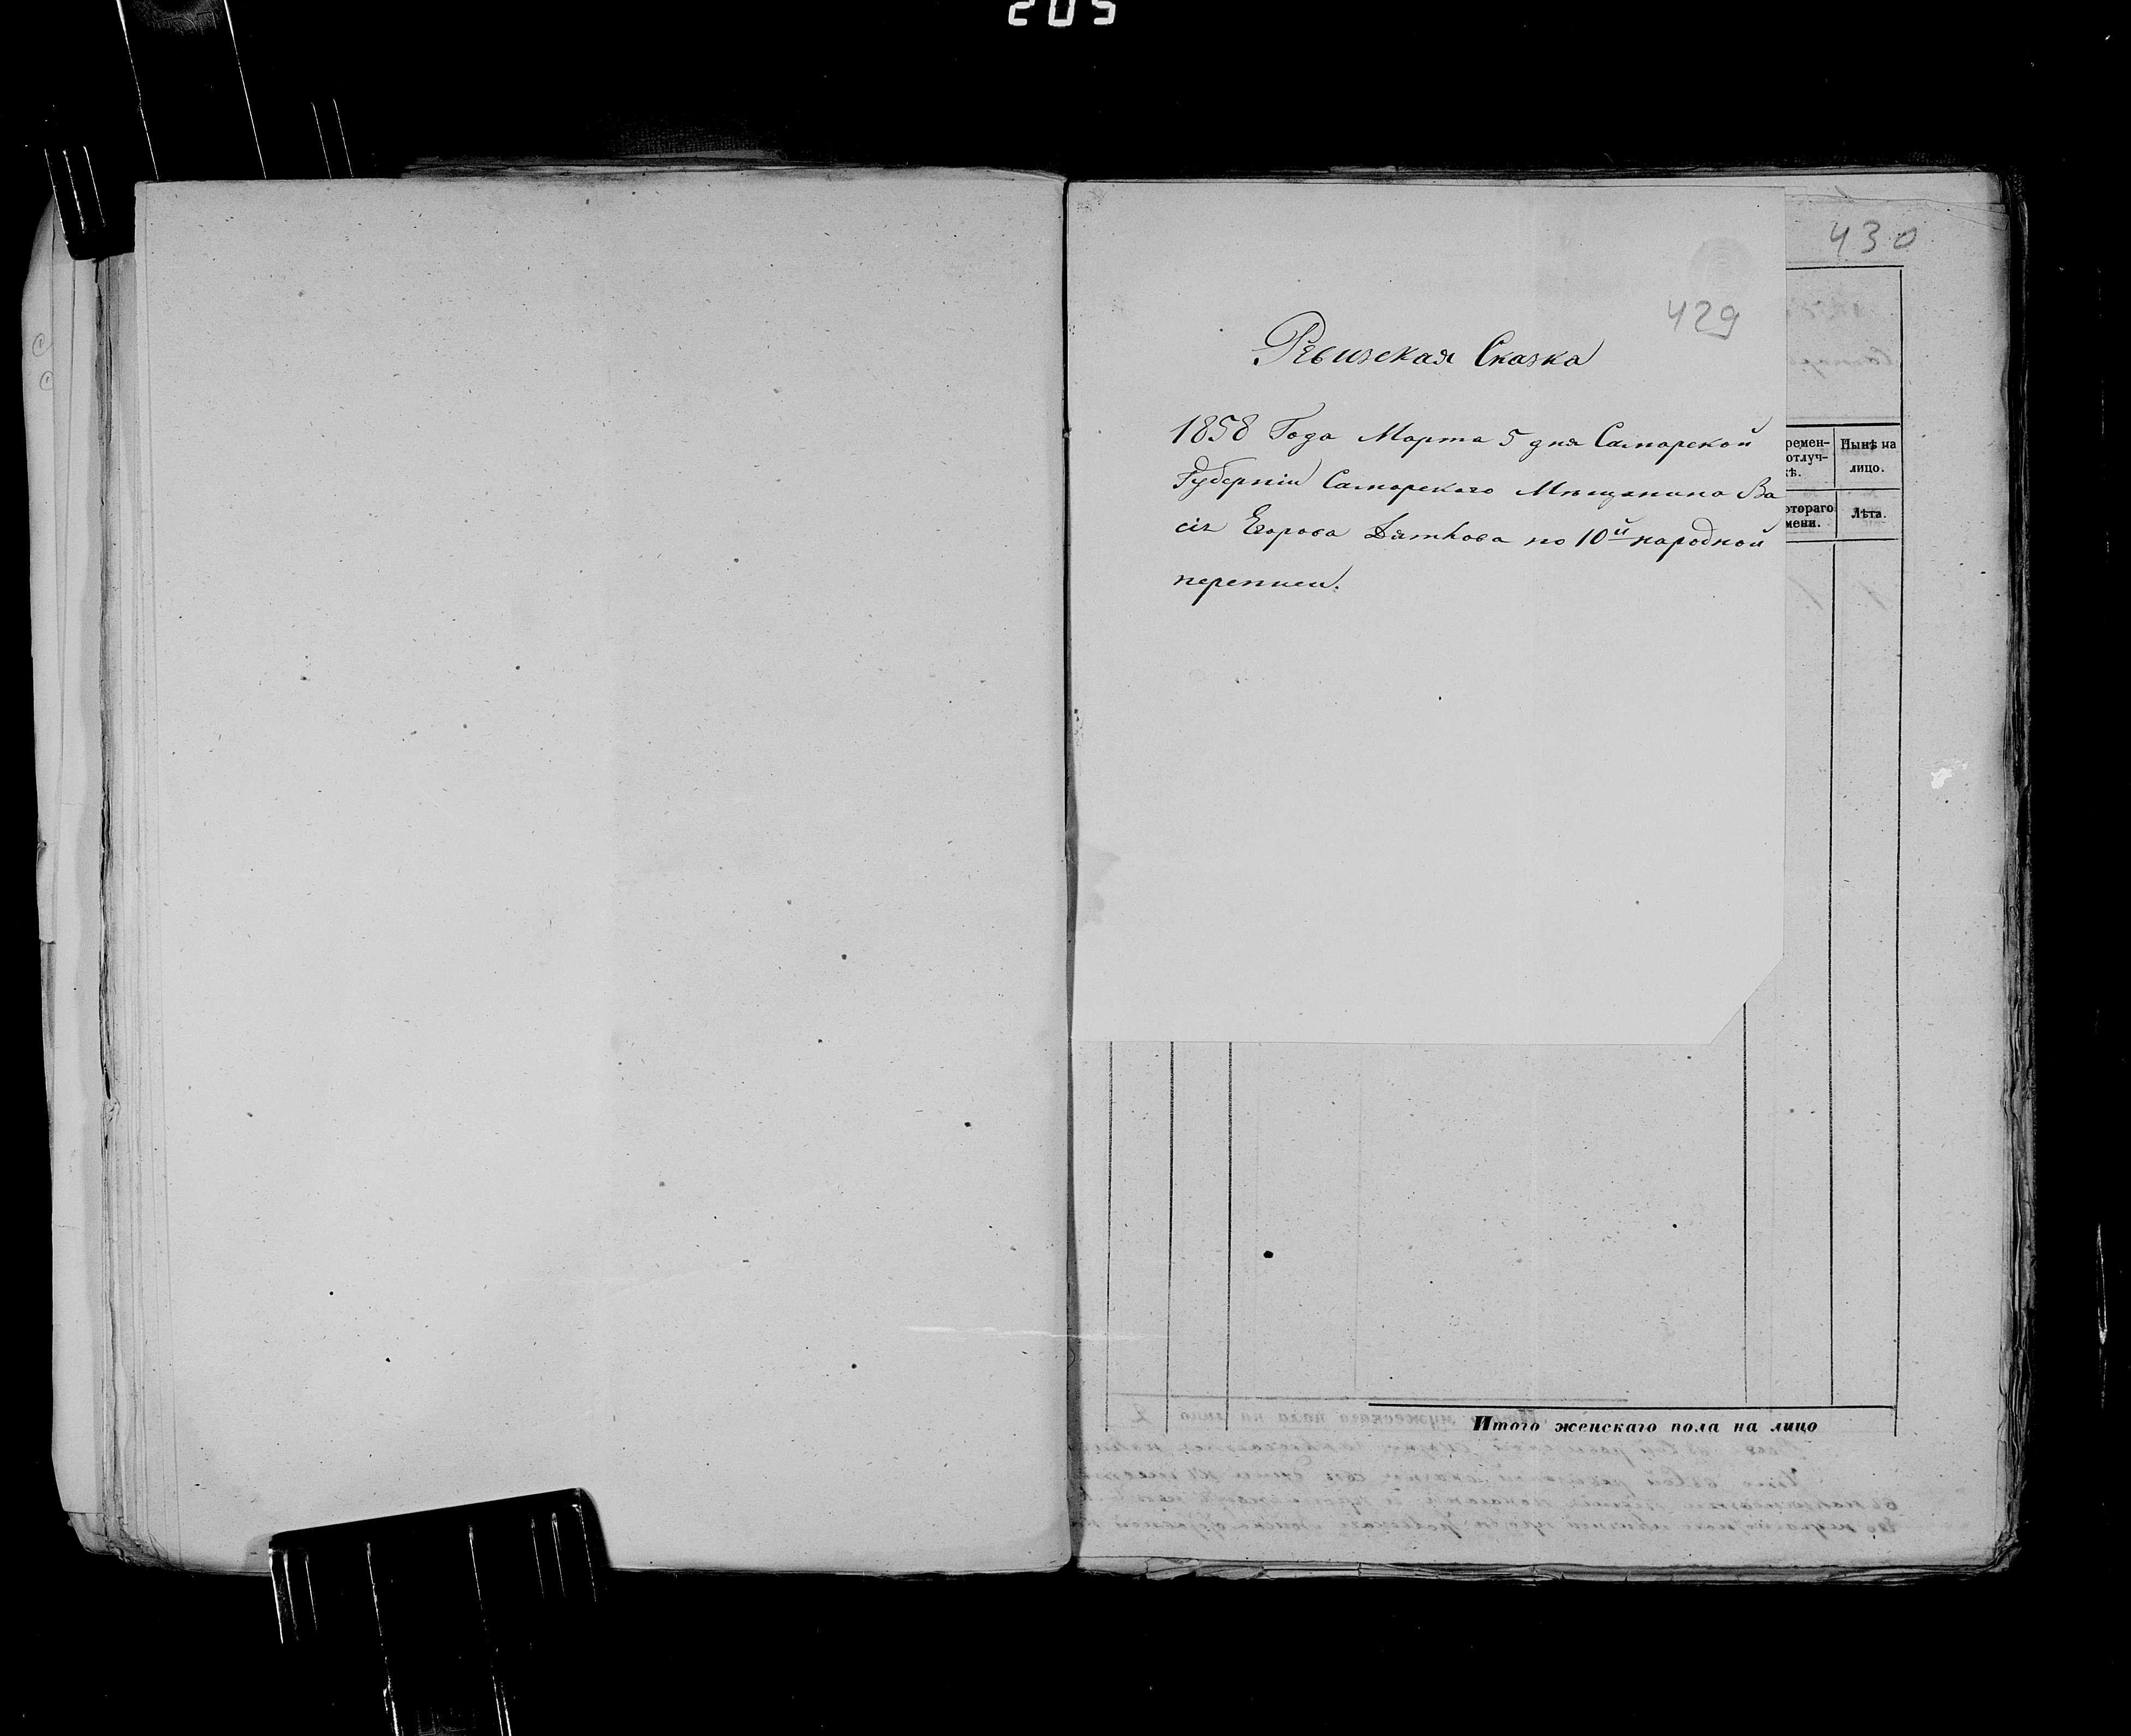 205
430
429
Ревизская Сказка
1858 Года Марта 5 дня Самарской
Губерніи Самарскаго Мѣщанина Ва
сіл Егорова Дяткова по 10й народной
переписи.
ремен-
отлуч-
кѣ.
Нынѣ на
лицо.
отораго
мени.
Лѣта.
Итого женскаго пола на лицо